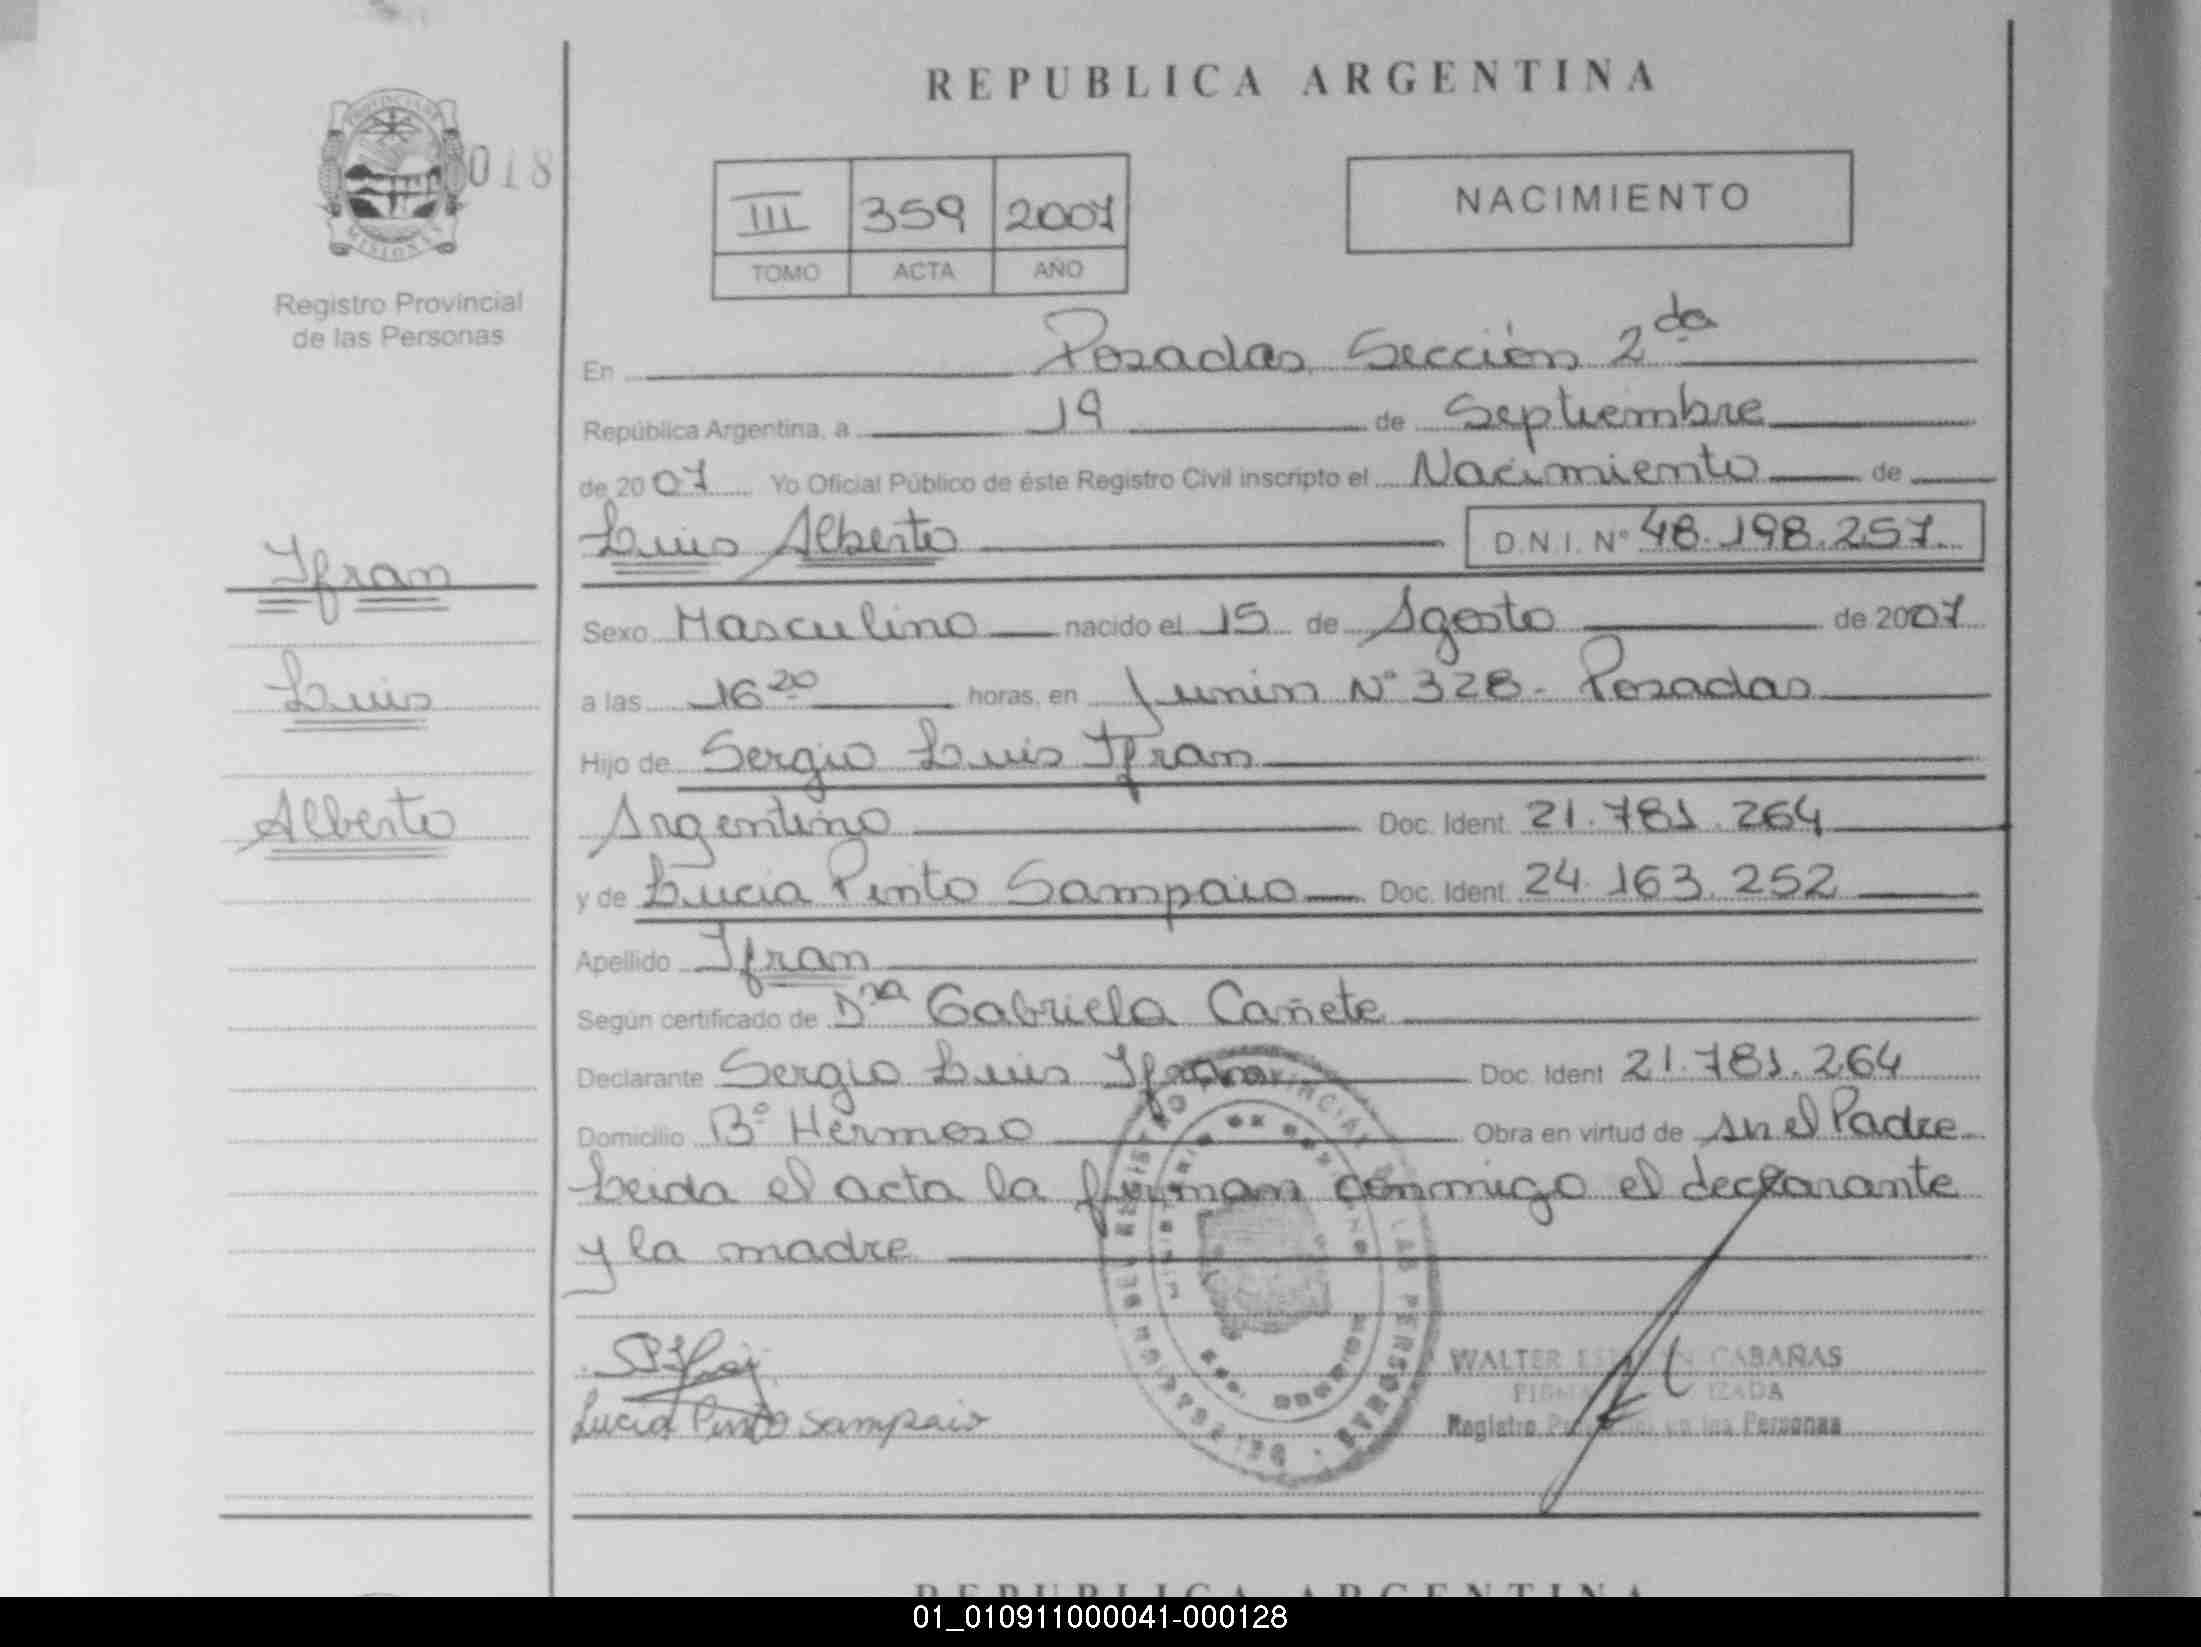 REPUBLICA ARGENTINA
PROVINCIA DE
MISIONES
018
Registro Provincial
de las Personas
III 359 2007
TOMO ACTA AÑO
NACIMIENTO
En Posadas Sección 2da
República Argentina, a 19 de Septiembre
de 2007 Yo Oficial Público de éste Registro Civil inscripto el Nacimiento de
Luis Alberto D.N.I. Nº 48.198.257
Ifran
Luis
Alberto
Sexo Masculino nacido el 15 de Agosto de 2007
a las 16 20 horas, en Junin Nº 328 - Posadas
Hijo de Sergio Luis Ifran
Argentino Doc. Ident. 21.781.264
y de Lucia Pinto Sampaio Doc. Ident. 24.163.252
Apellido Ifran
Según certificado de Dra Gabriela Cañete
Declarante Sergio Luis Ifran Doc. Ident. 21.781.264
Domicilio Bº Hermoso Obra en virtud de su el Padre
Leida el acta la firman conmigo el declarante
y la madre
Lucia Pinto Sampaio
WALTER CABAÑAS
Registro de las Personas
REPUBLICA ARGENTINA
01_010911000041-000128